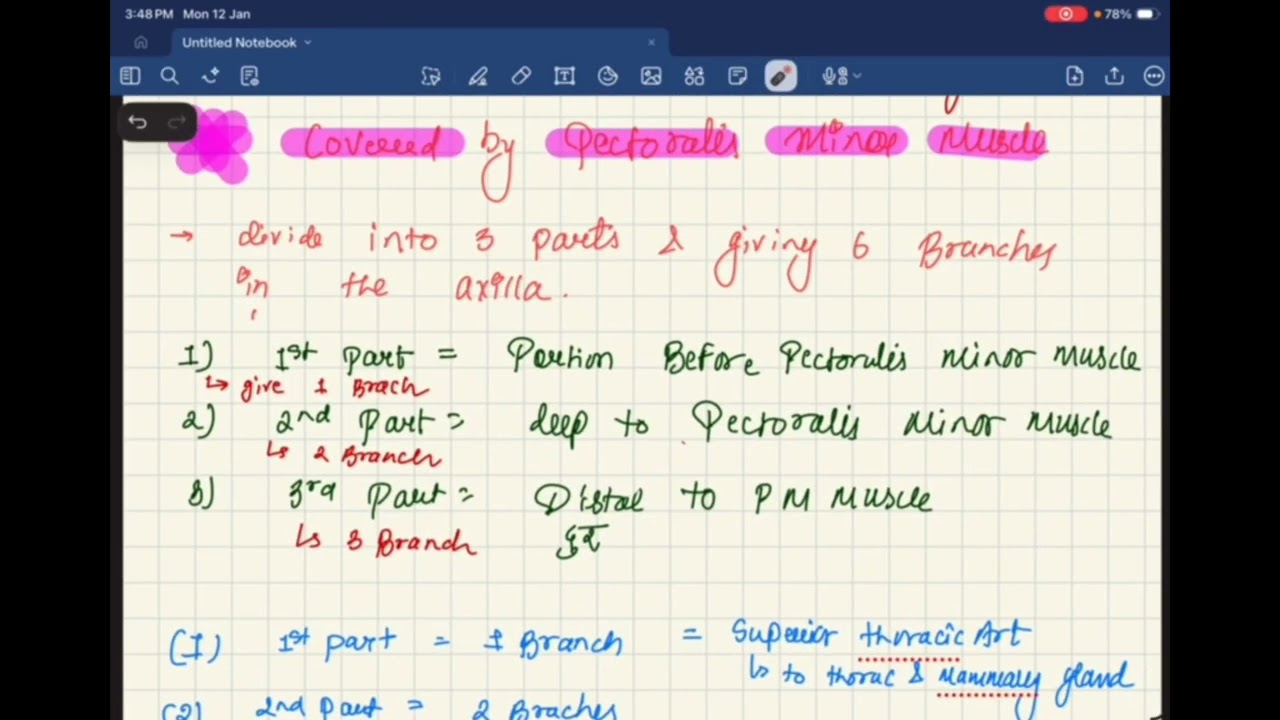 3:48 PM Mon 12 Jan 78%
Untitled Notebook
Covered by Pectoralis Minor Muscle
→ divide into 3 parts & giving 6 Branches
in the axilla.
1) 1st Part = Portion Before Pectoralis minor muscle
↳ give 1 Brach
2) 2nd Part = deep to Pectoralis minor muscle
↳ 2 Branch
3) 3rd Part = Distal to PM Muscle
↳ 3 Branch दूर
(1) 1st part = 1 Branch = Superior thoracic Art
↳ to thorac & Mammary gland
(2) 2nd Part = 2 Braches